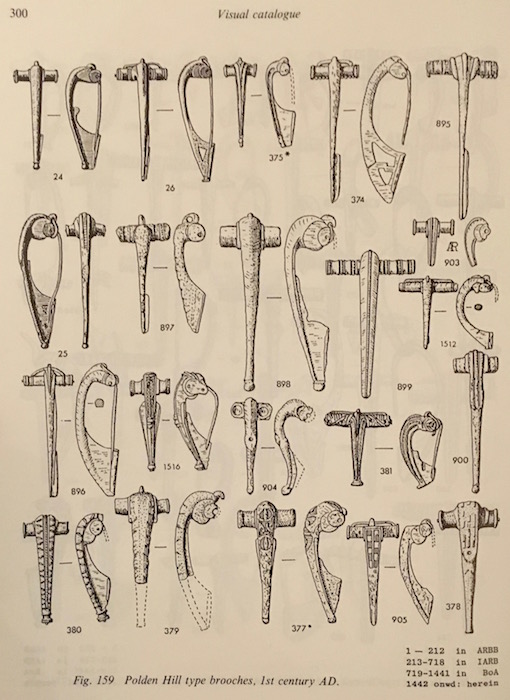 300
Visual catalogue
24
26
375*
374
895
25
897
898
899
ÆR
903
1512
896
1516
904
381
900
380
379
377*
905
378
1 — 212 in ARBB
213-718 in IARB
719-1441 in BoA
1442 onwd: herein
Fig. 159 Polden Hill type brooches, 1st century AD.